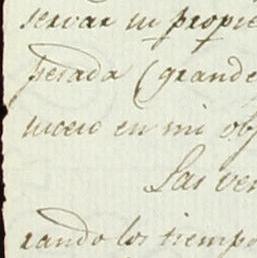 servar su propie
pesada (grande
lucero en mi obj
Las ven
rando los tiempo